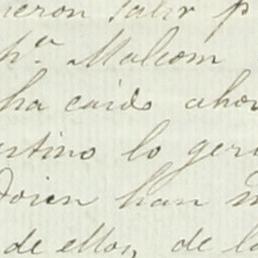 ieron salir p
pª Malcom
ha caido ahor
estino lo ger
doien han
de ellos, de la